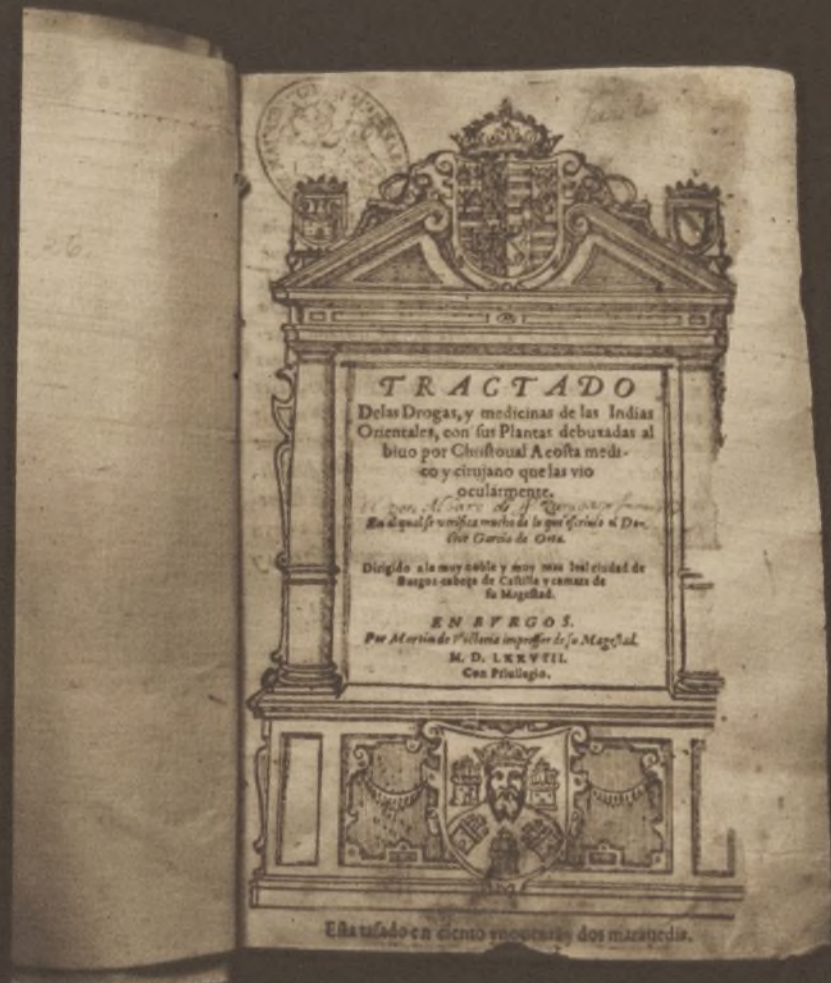 26.
TRACTADO
Delas Drogas, y medicinas de las Indias
Orientales, con sus Plantas debuxadas al
biuo por Christoual Acosta medi-
co y cirujano que las vio
ocularmente.
En el qual se verifica mucho de lo que escriuio el Do-
ctor Garcia de Orta.
Dirigido a la muy noble y muy mas leal ciudad de
Burgos cabeça de Castilla y camara de
su Magestad.
EN BVRGOS.
Por Martin de Victoria impressor de su Magestad.
M. D. LXXVIII.
Con Priuilegio.
Esta tasado en ciento y nouenta y dos marauedis.